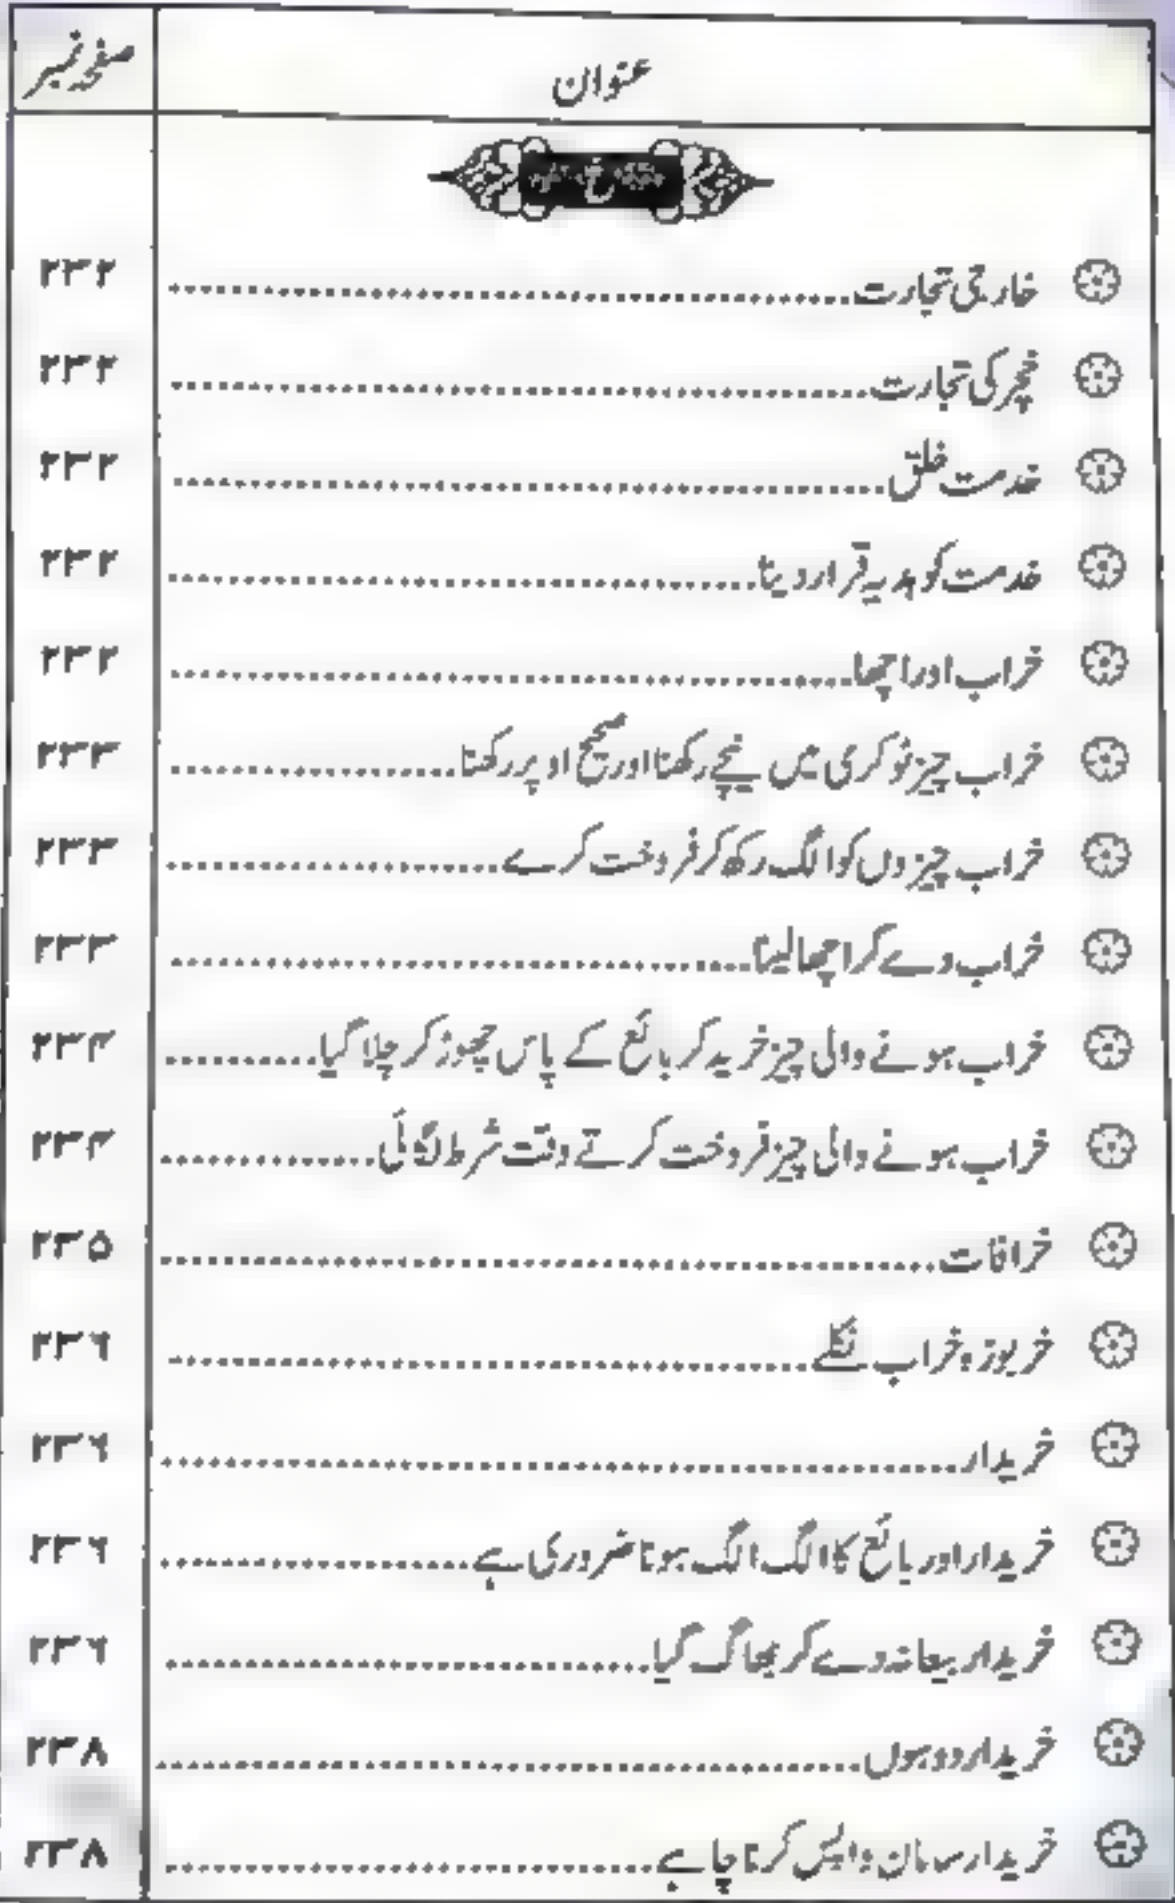 عنوان صفحہ نمبر
خ
خارجی تجارت ۲۳۲
خچر کی تجارت ۲۳۲
خدمت خلق ۲۳۲
خدمت کو ہدیہ قرار دینا ۲۳۲
خراب اور اچھا ۲۳۲
خراب چیز ٹوکری میں نیچے رکھنا اور صحیح اوپر رکھنا ۲۳۳
خراب چیزوں کو الگ رکھ کر فروخت کرے ۲۳۳
خراب دے کر اچھا لینا ۲۳۳
خراب ہونے والی چیز خرید کر بائع کے پاس چھوڑ کر چلا گیا ۲۳۴
خراب ہونے والی چیز فروخت کرتے وقت شرط لگائی ۲۳۴
خرافات ۲۳۵
خربوزہ خراب نکلے ۲۳۶
خریدار ۲۳۶
خریدار اور بائع کا الگ الگ ہونا ضروری ہے ۲۳۶
خریدار بیعانہ دے کر بھاگ گیا ۲۳۶
خریدار دو ہوں ۲۳۸
خریدار سامان واپس کرنا چاہے ۲۳۸